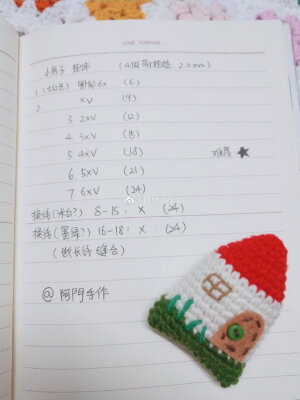 LOVE FOREVER
小房子 挂饰 (4股 2.0mm)
1 (大红色) 圈起6x (6)
2 xV (9)
3 2xV (12)
4 3xV (15)
5 4xV (18)
难度 ★
6 5xV (21)
7 6xV (24)
换线(米白?) 8-15: X (24)
换线(墨绿?) 16-18: X (24)
(断长线 缝合)
@ 阿門手作